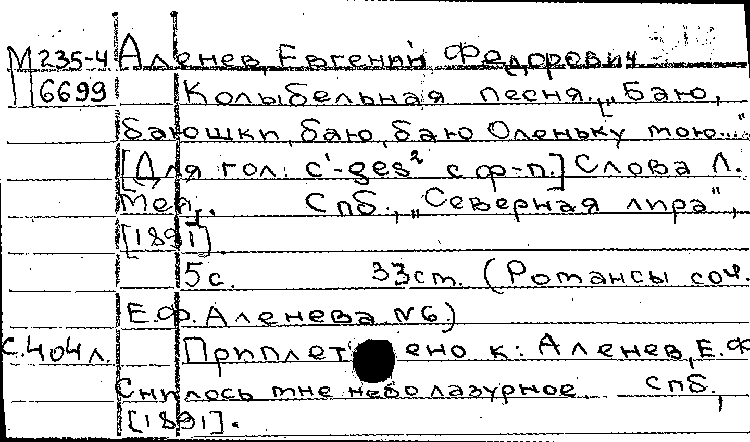 М 235-4 Аленев, Евгений Федорович
6699 Колыбельная песня. „Баю,
баюшки, баю, баю Оленьку мою..."
[Для гол. c¹-ges² с ф-п.] Слова Л.
Мея. Спб., „Северная лира",
[1891].
5с. 33см. (Романсы соч.
Е.Ф. Аленева №6.)
с.404л. Приплетено к: Аленев, Е.Ф
Снилось мне небо лазурное Спб,
[1891].